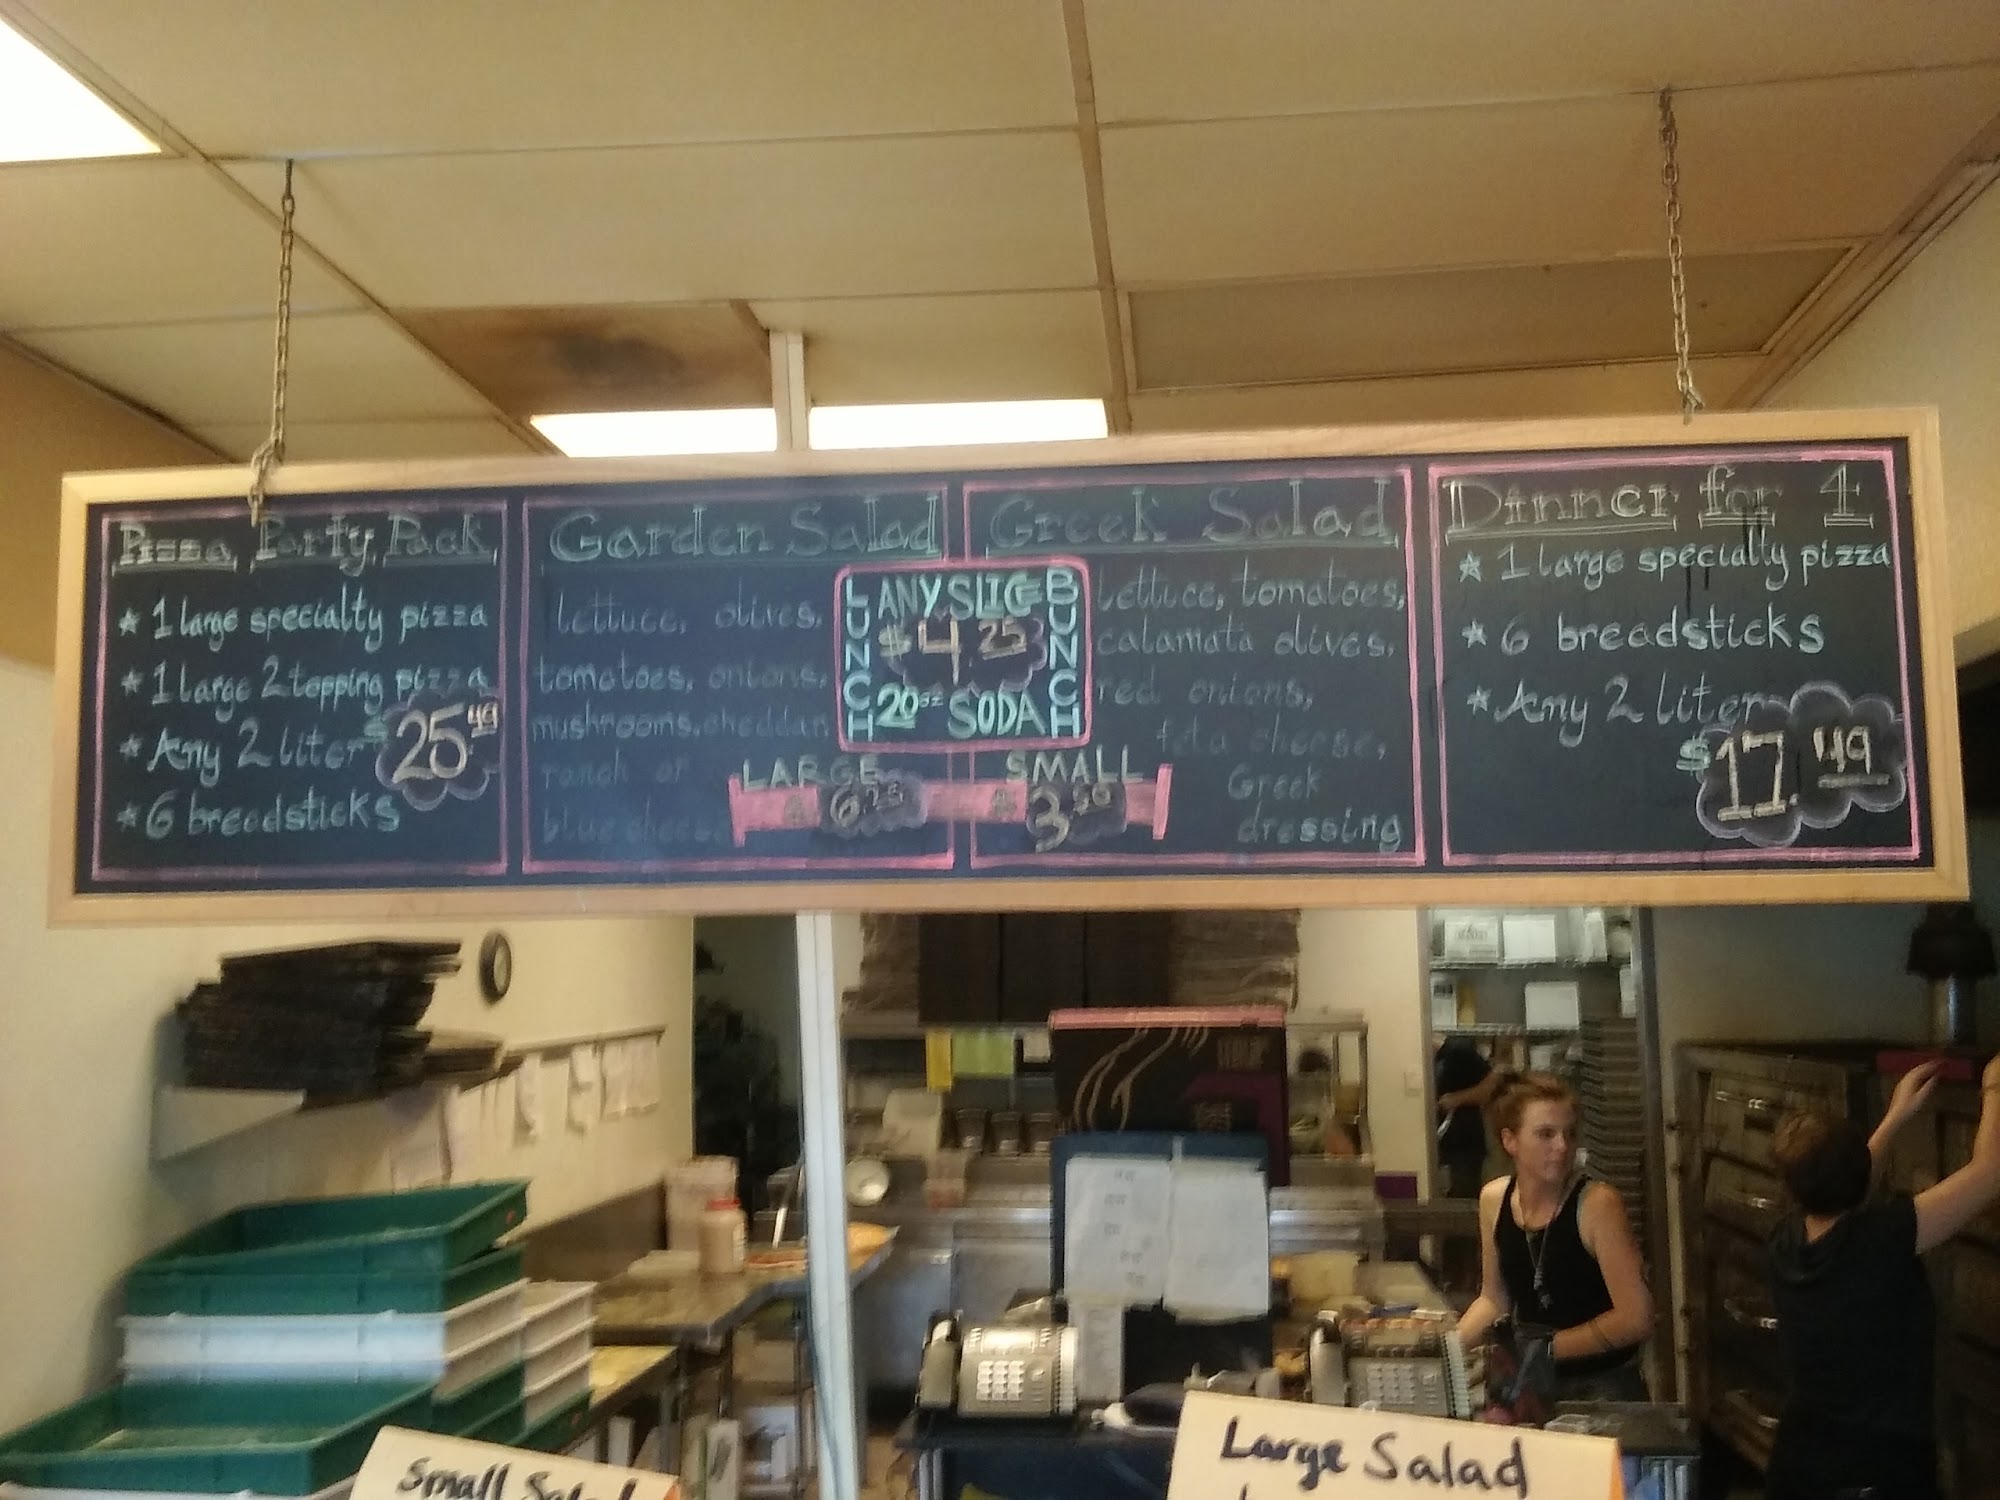 Pizza Party Pack
★ 1 large specialty pizza
★ 1 large 2 topping pizza
★ Any 2 liter
$25.49
★ 6 breadsticks
Garden Salad
lettuce, olives,
tomatoes, onions,
mushrooms, cheddar,
ranch or
blue cheese
LUNCH
ANY SLICE
$4.25
20oz SODA
BUNCH
LARGE
$6.25
SMALL
$3.50
Greek Salad
lettuce, tomatoes,
calamata olives,
red onions,
feta cheese,
Greek
dressing
Dinner for 4
★ 1 large specialty pizza
★ 6 breadsticks
★ Any 2 liter
$17.49
Small Salad
Large Salad